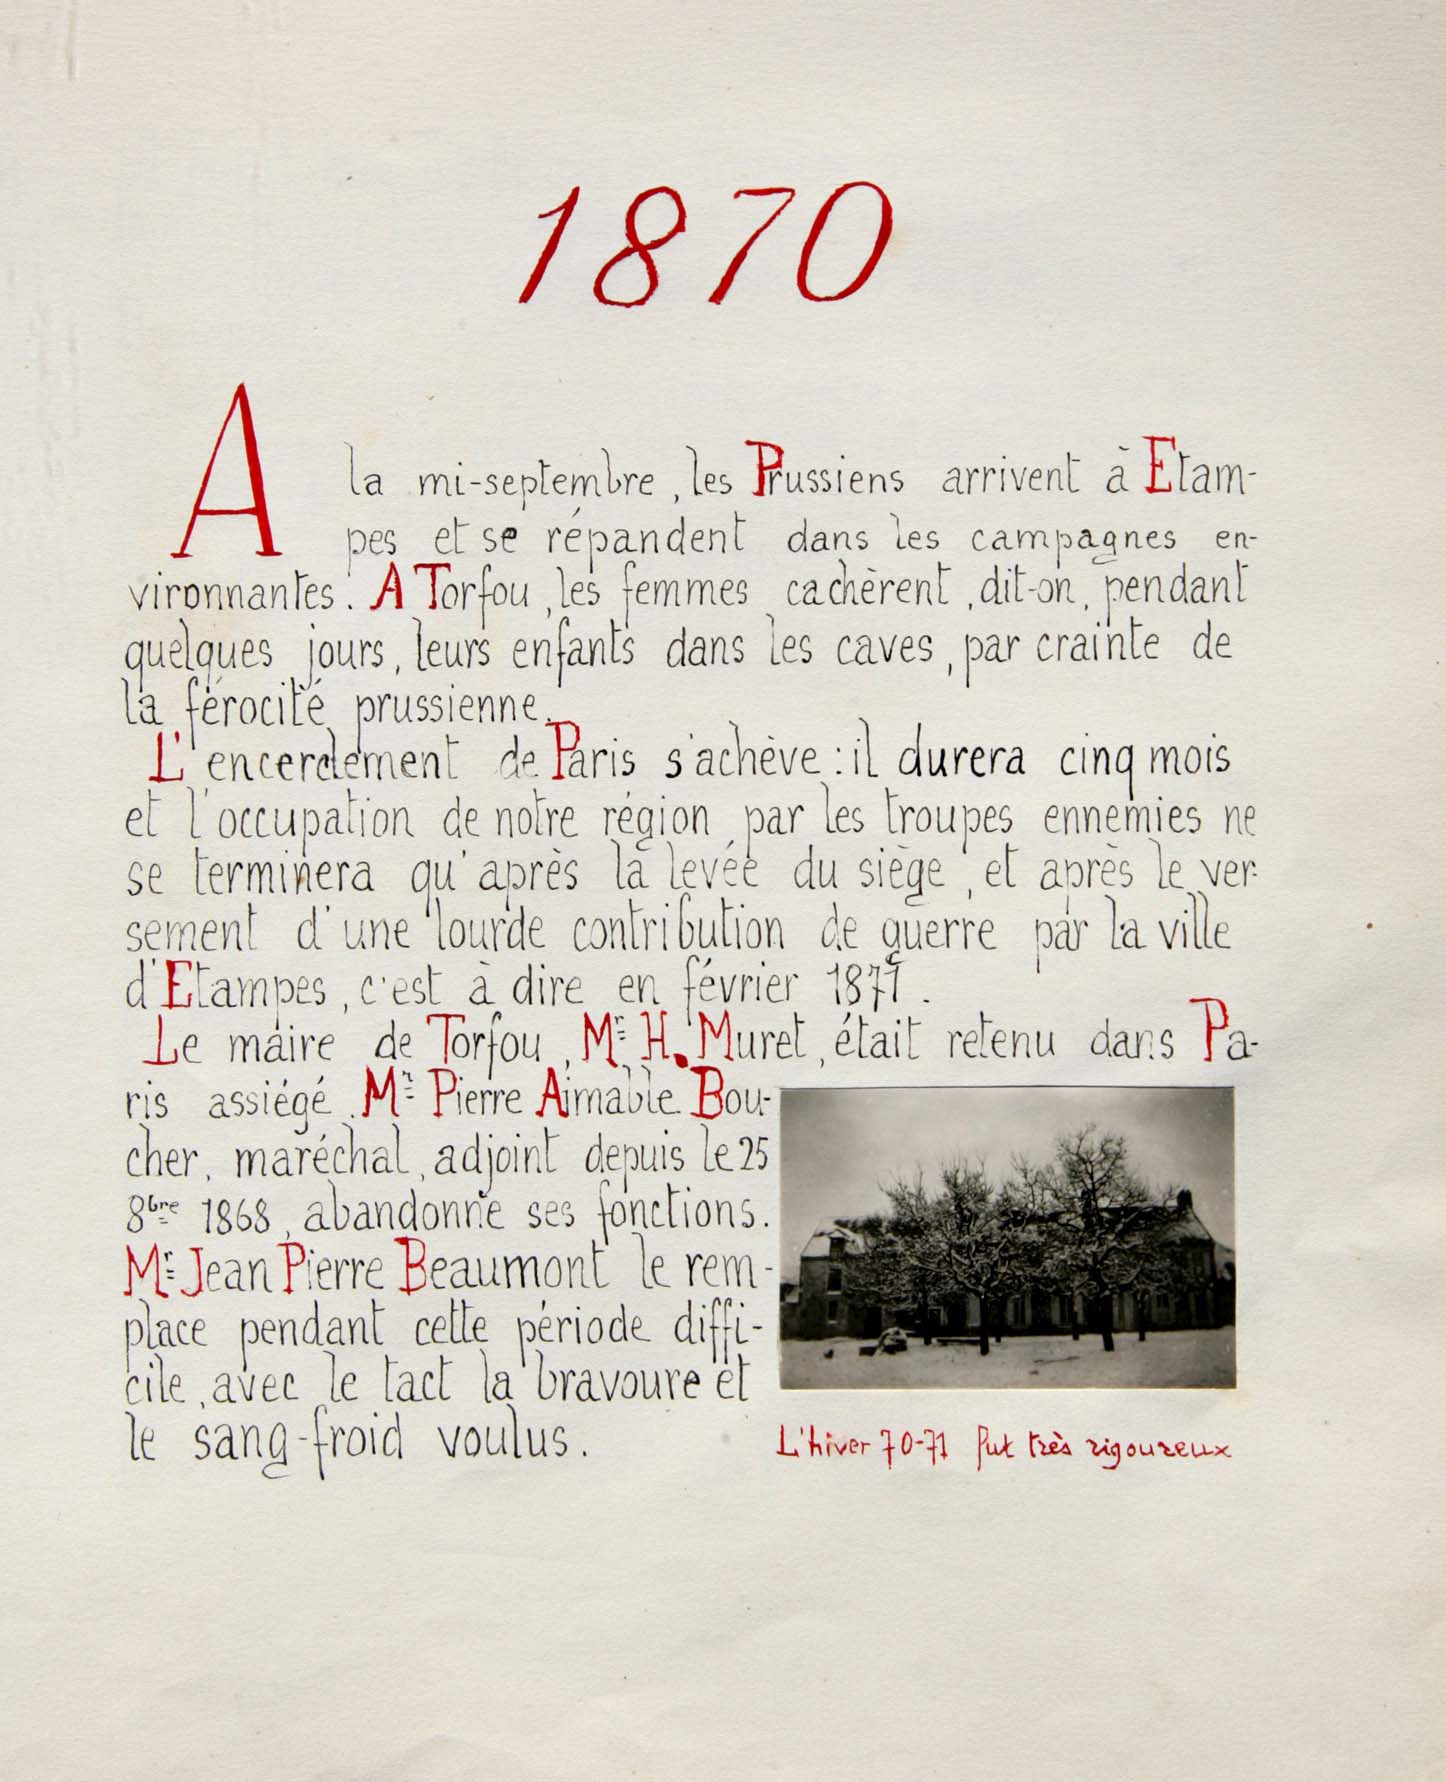 1870
A la mi-septembre, les Prussiens arrivent à Etam-
pes et se répandent dans les campagnes en-
vironnantes. A Torfou, les femmes cachèrent, dit-on, pendant
quelques jours, leurs enfants dans les caves, par crainte de
la férocité prussienne.
L'encerclement de Paris s'achève : il durera cinq mois
et l'occupation de notre région par les troupes ennemies ne
se terminera qu'après la levée du siège, et après le ver-
sement d'une lourde contribution de guerre par la ville
d'Etampes, c'est à dire en février 1871.
Le maire de Torfou, Mr H. Muret, était retenu dans Pa-
ris assiégé. Mr Pierre Aimable Bou-
cher, maréchal, adjoint depuis le 25
8bre 1868, abandonne ses fonctions.
Mr Jean Pierre Beaumont le rem-
place pendant cette période diffi-
cile, avec le tact la bravoure et
le sang-froid voulus.
L'hiver 70-71 fut très rigoureux